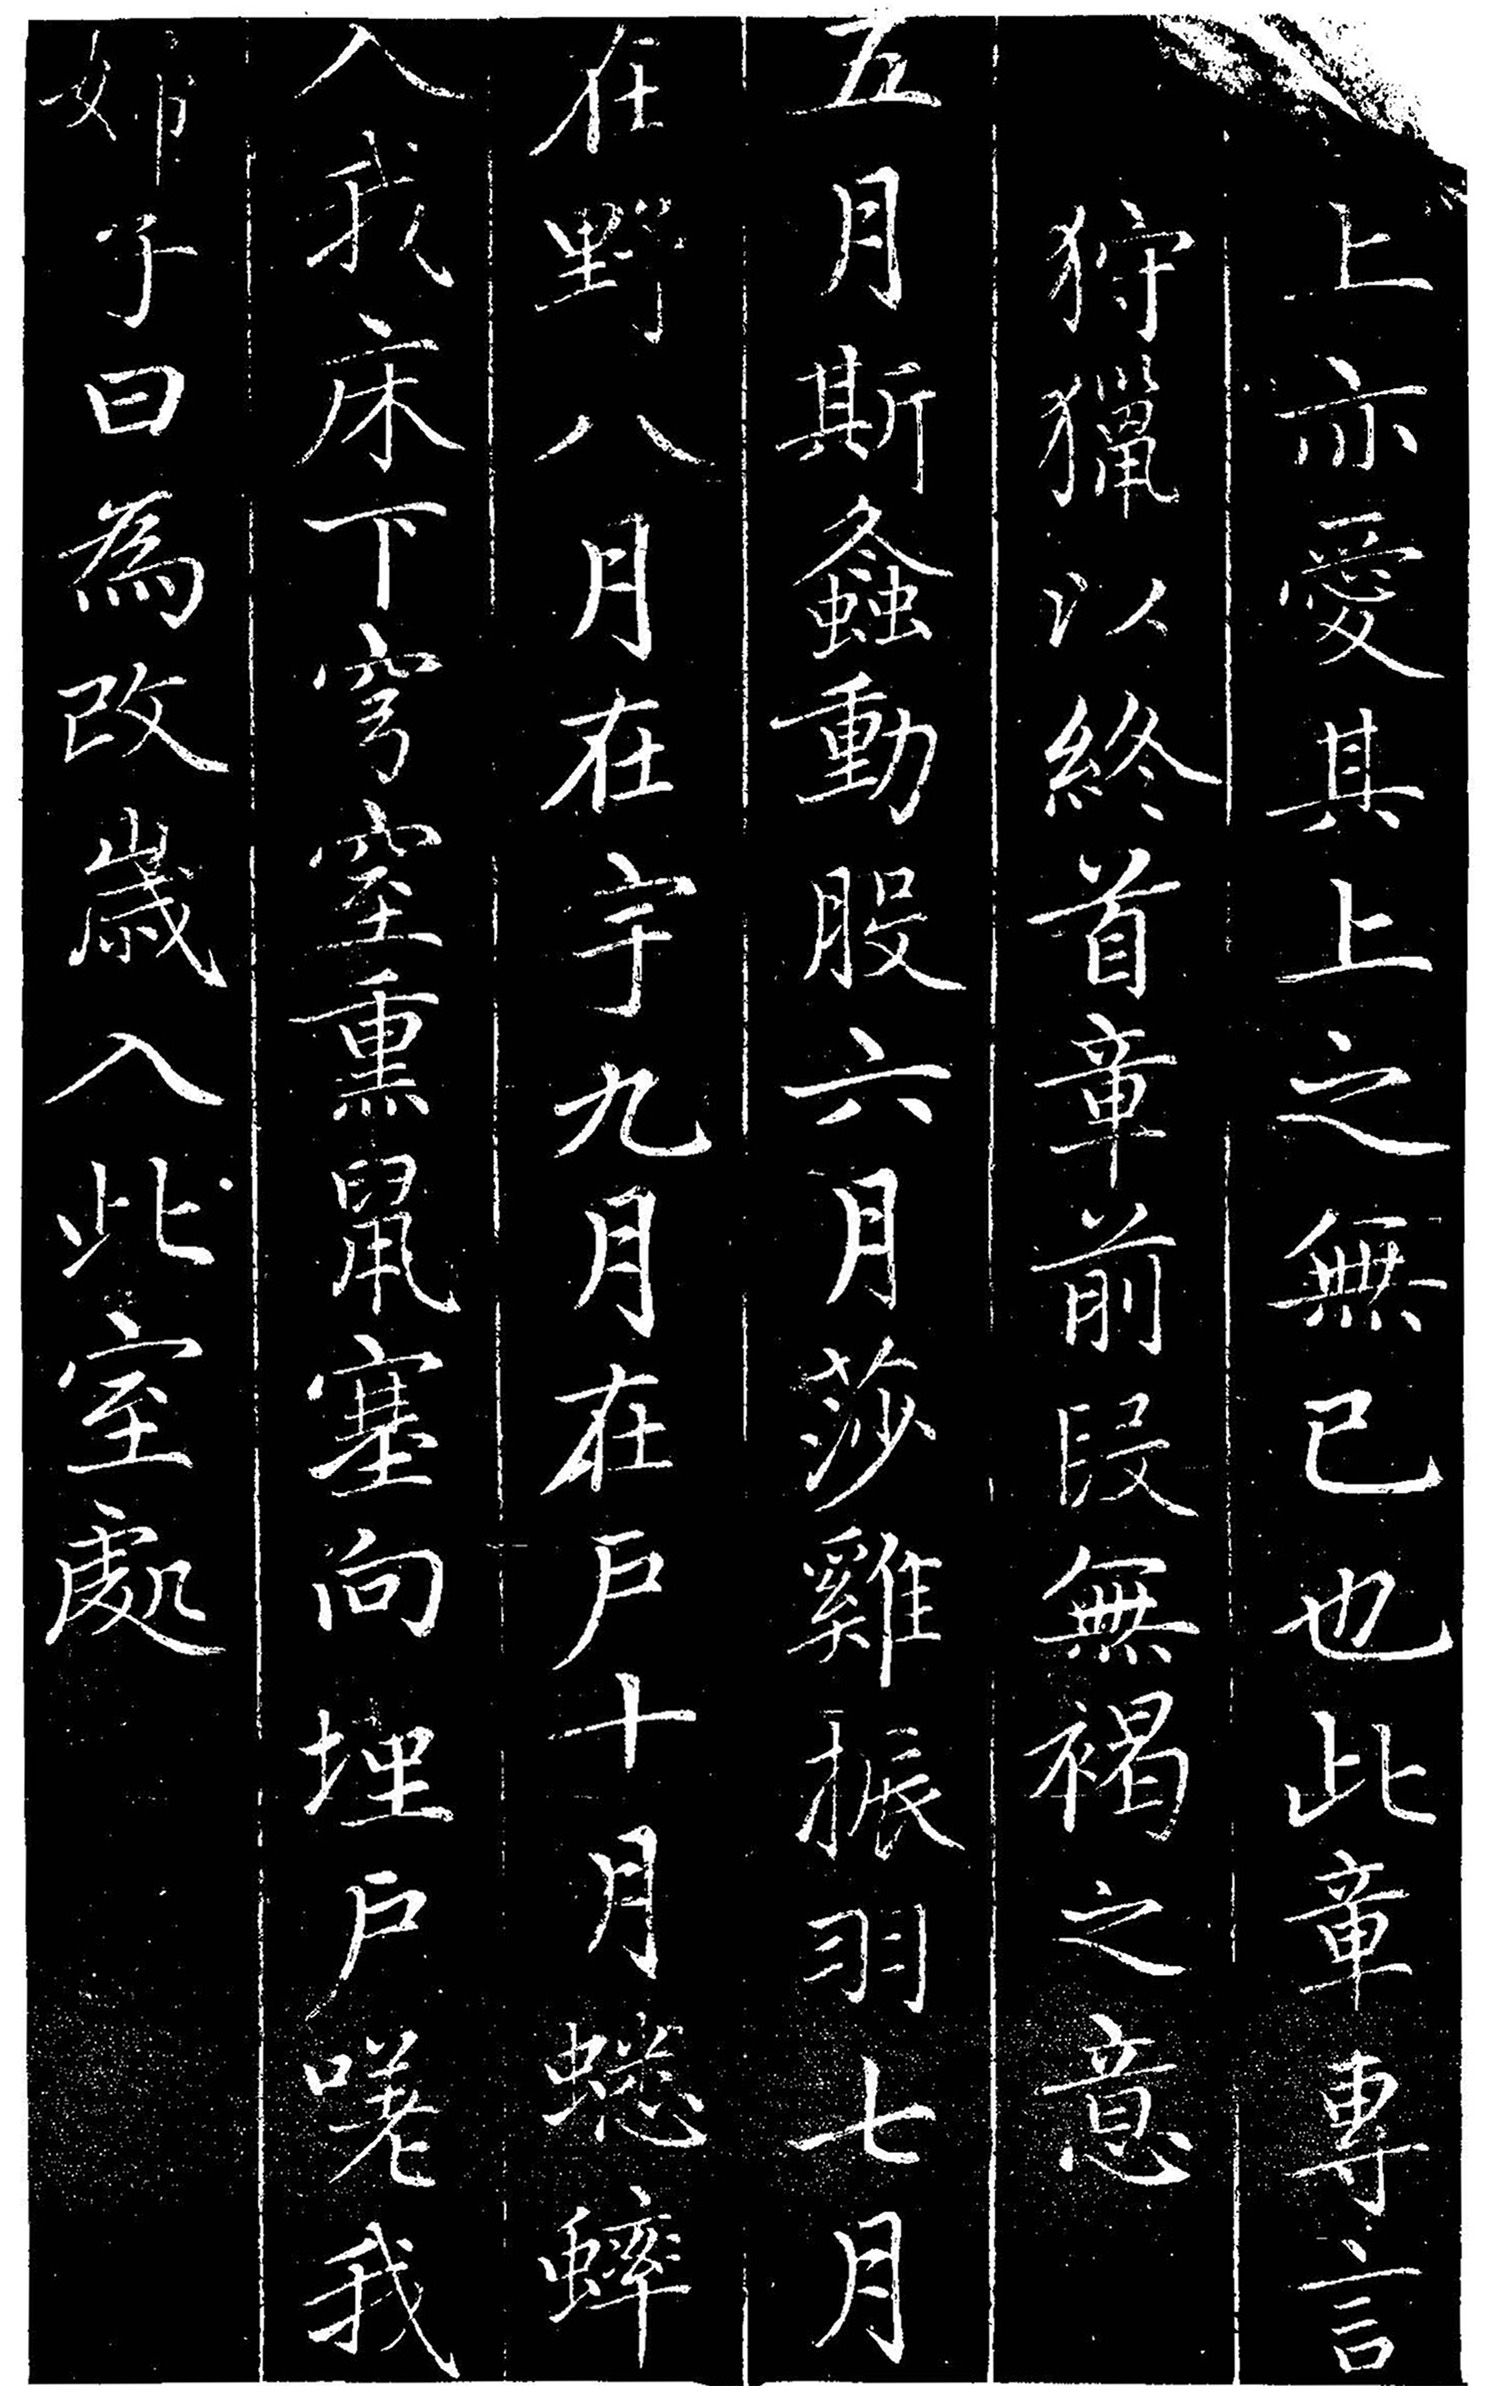 上亦愛其上之無已也此章專言
狩獵以終首章前段無褐之意
五月斯螽動股六月莎雞振羽七月
在野八月在宇九月在戶十月蟋蟀
入我床下穹窒熏鼠塞向墐戶嗟我
婦子曰為改歲入此室處